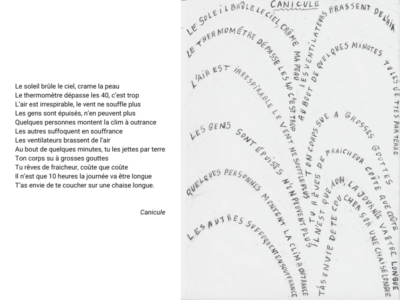 Le soleil brûle le ciel, crame la peau
Le thermomètre dépasse les 40, c'est trop
L'air est irrespirable, le vent ne souffle plus
Les gens sont épuisés, n'en peuvent plus
Quelques personnes montent la clim à outrance
Les autres suffoquent en souffrance
Les ventilateurs brassent de l'air
Au bout de quelques minutes, tu les jettes par terre
Ton corps su à grosses gouttes
Tu rêves de fraicheur, coûte que coûte
Il n'est que 10 heures la journée va être longue
T'as envie de te coucher sur une chaise longue.
Canicule
CANICULE
LE SOLEIL BRÛLE LE CIEL, CRÂME MA PEAU
LE THERMOMÈTRE DÉPASSE LES 40 C'EST TROP
L'AIR EST IRRESPIRABLE, LE VENT NE SOUFFLE PLUS
LES GENS SONT ÉPUISÉS N'EN PEUVENT PLUS
QUELQUES PERSONNES MONTENT LA CLIM À OUTRANCE
LES AUTRES SUFFOQUENT EN SOUFFRANCE
LES VENTILATEURS BRASSENT DE L'AIR
AU BOUT DE QUELQUES MINUTES TU LES JETTES PAR TERRE
TON CORPS SUE A GROSSES GOUTTES
TU RÊVES DE FRAICHEUR COÛTE QUE COÛTE
IL N'EST QUE 10H, LA JOURNÉE VA ÊTRE LONGUE
T'AS ENVIE DE TE COUCHER SUR UNE CHAISE LONGUE